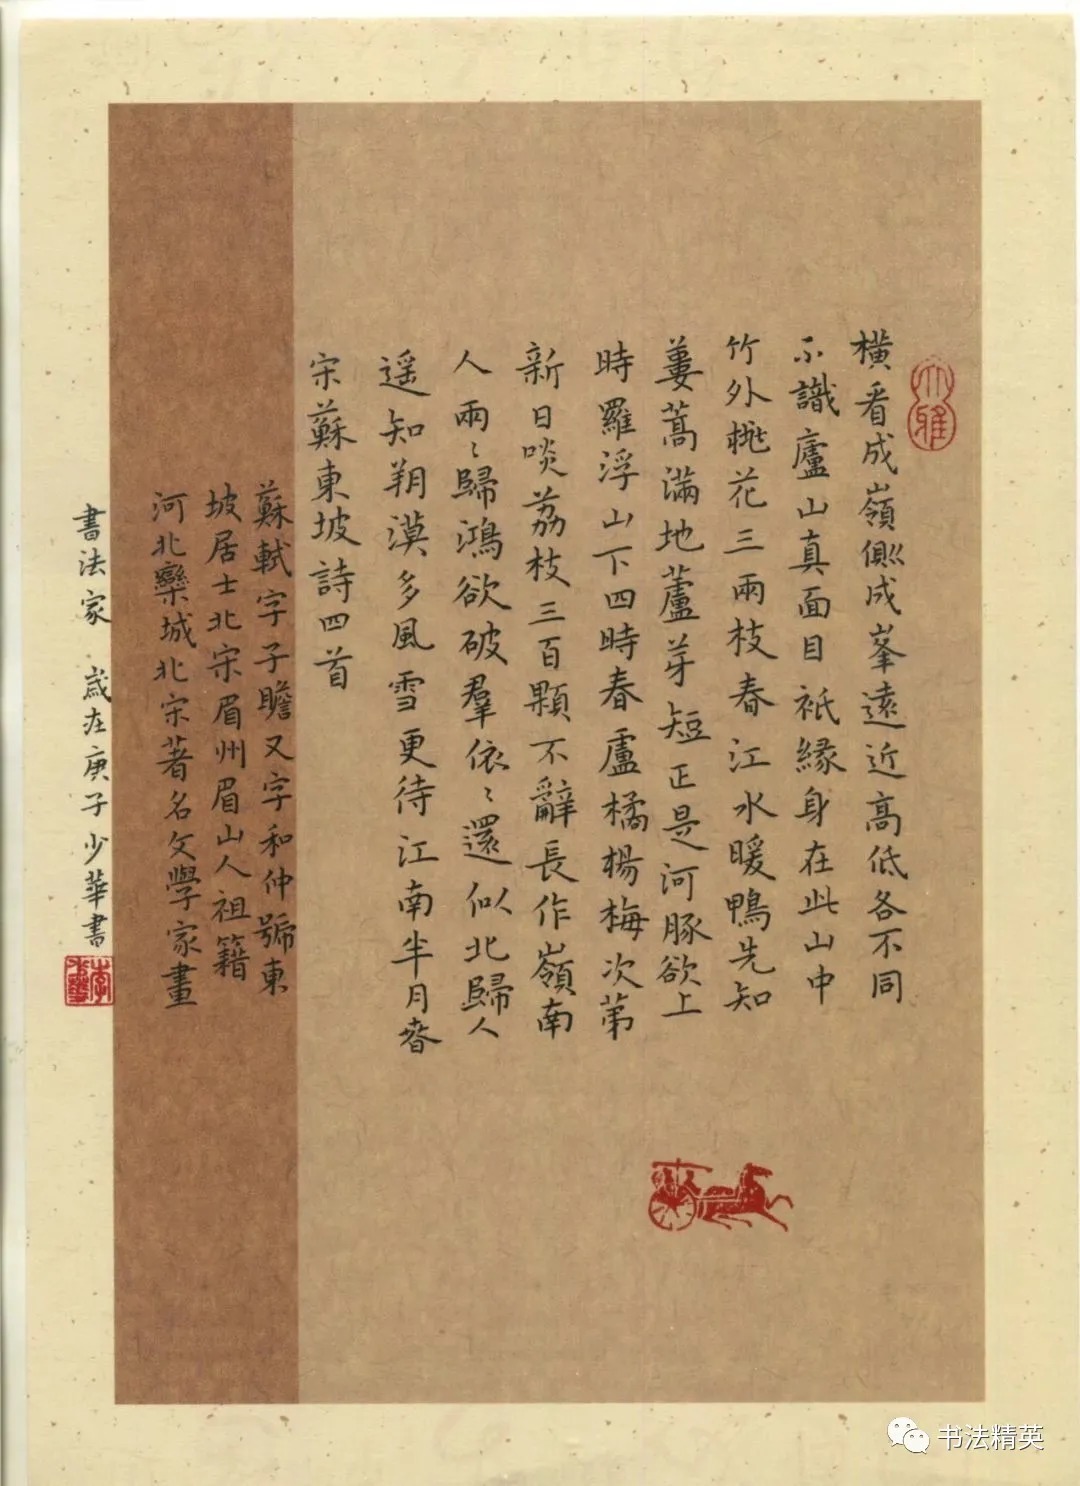 大雅
橫看成嶺側成峯遠近高低各不同
不識廬山真面目祇緣身在此山中
竹外桃花三兩枝春江水暖鴨先知
蔞蒿滿地蘆芽短正是河豚欲上
時羅浮山下四時春盧橘楊梅次第
新日啖荔枝三百顆不辭長作嶺南
人兩〻歸鴻欲破羣依〻還似北歸人
遥知朔漠多風雪更待江南半月春
宋蘇東坡詩四首
蘇軾字子瞻又字和仲號東
坡居士北宋眉州眉山人祖籍
河北欒城北宋著名文學家畫
書法家 歲在庚子少華書
李少華
书法精英